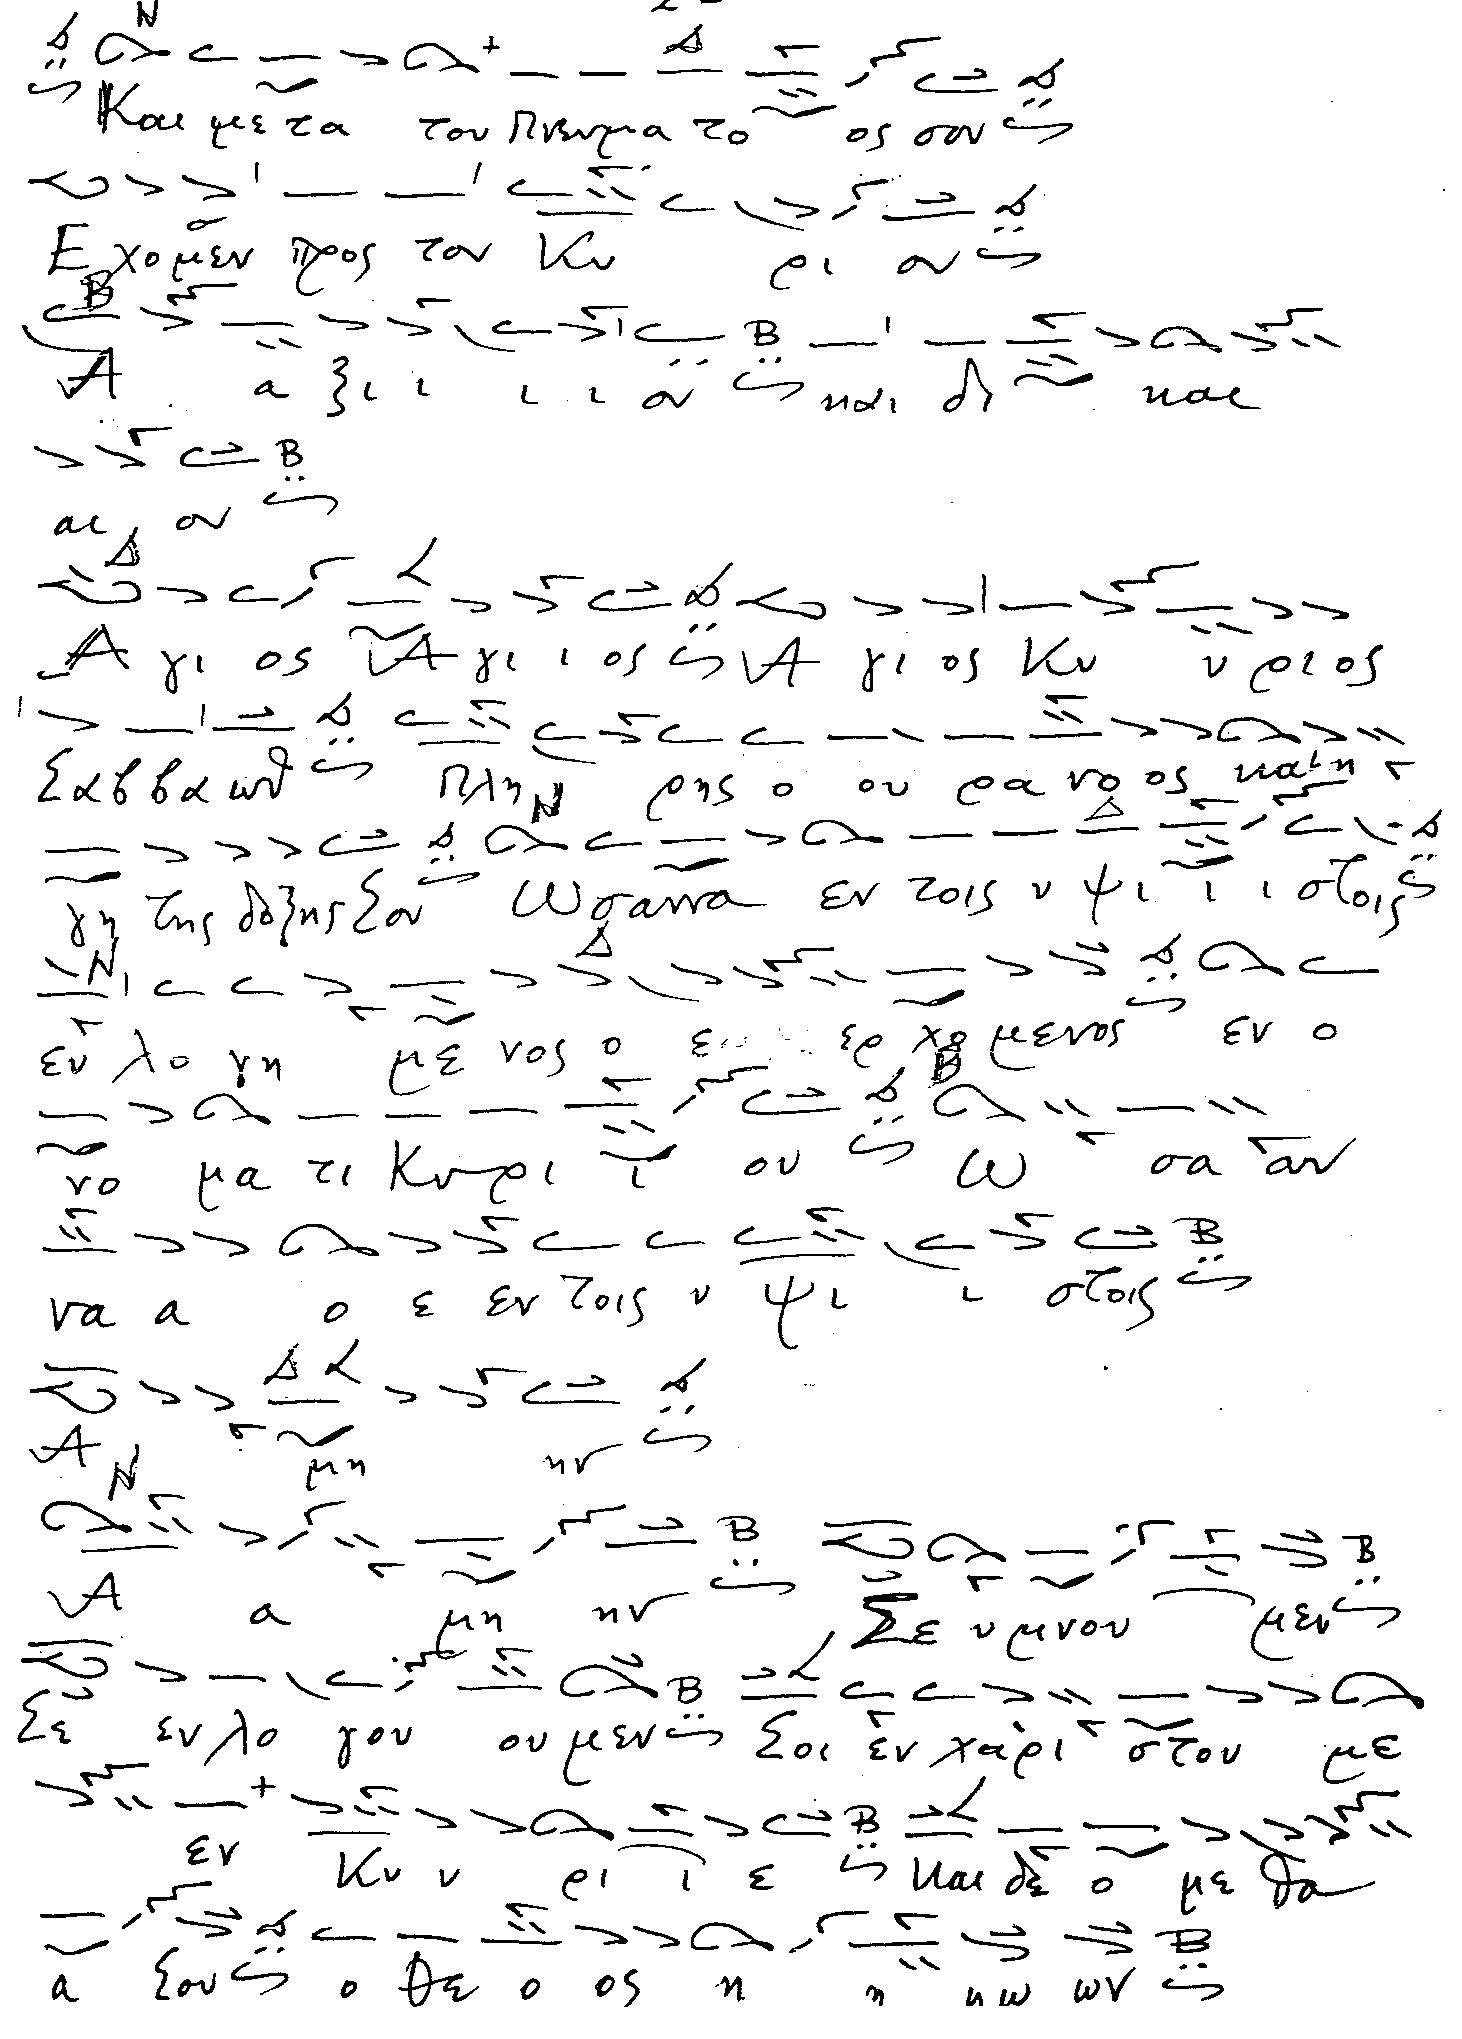 Και με τα του Πνευμα το ος σου
Ε χομεν προς τον Κυ ρι ον
Α α ξι ι ι ι ον και δι και
αι ον
Α γι ος Α γι ι ος Α γι ος Κυ υ ριος
Σαββαωθ Πλη ρης ο ου ρα νο ος και η
γη της δοξης Σου Ωσαννα εν τοις υ ψι ι ι στοις
ευ λο γη με νος ο ε ερ χο μενος εν ο
νο μα τι Κυρι ι ου Ω σα αν
να α ο ε εν τοις υ ψι ι στοις
Α μη ην
Α α μη ην Σε υμνου μεν
Σε ευ λο γου ου μεν Σοι ευ χαρι στου με
εν Κυ υ ρι ι ε και δε ο με θα
α Σου ο θε ο ος η η μω ων